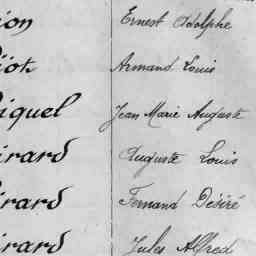 ion Ernest Adolphe
Armand Louis
iquel Jean Marie Auguste
irard Auguste Louis
irard Fernand Désiré
irard Jules Alfred